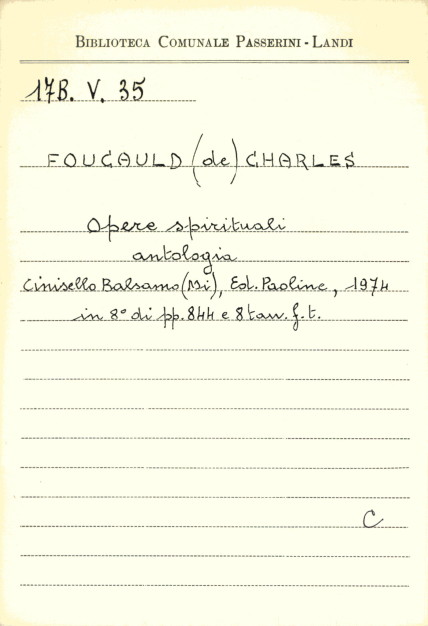 BIBLIOTECA COMUNALE PASSERINI-LANDI
17B. V. 35
FOUCAULD (de) CHARLES
Opere spirituali
antologia
Cinisello Balsamo (Mi), Ed. Paoline, 1974
in 8° di pp. 844 e 8 tav. f. t.
C